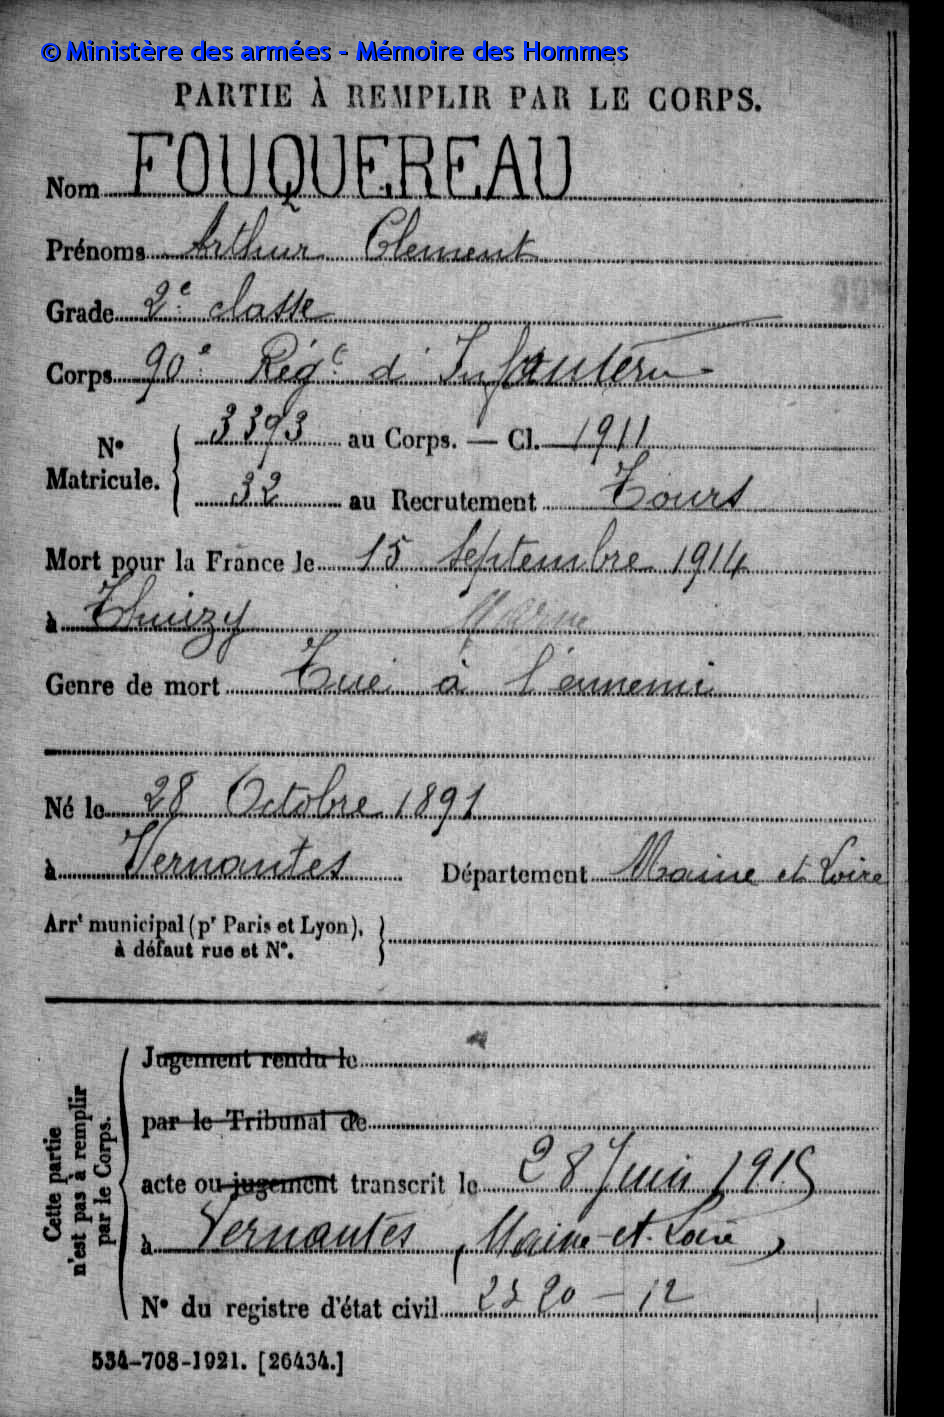 © Ministère des armées - Mémoire des Hommes
PARTIE À REMPLIR PAR LE CORPS.
Nom FOUQUEREAU
Prénoms Arthur Clement
Grade 2e classe
Corps 90e Régt d'Infanterie
N° Matricule. 3393 au Corps. — Cl. 1911
32 au Recrutement Tours
Mort pour la France le 15 Septembre 1914
à Thuizy Marne
Genre de mort Tué à l'ennemi
Né le 28 Octobre 1891
à Vernantes Département Maine et Loire
Arrt municipal (pr Paris et Lyon),
à défaut rue et N°.
Cette partie
n'est pas à remplir
par le Corps.
Jugement rendu le
par le Tribunal de
acte ou jugement transcrit le 28 Juin 1915
à Vernantes (Maine-et-Loire)
N° du registre d'état civil
534-708-1921. [26434.]